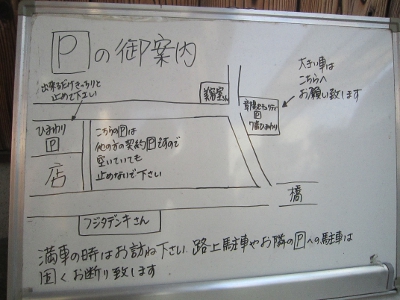 Pの御案内
出来るだけきっちりと
止めて下さい
美容室さん
大きい車は
こちらへ
お願い致します
P
7番ひまわり
ひまわり
P
店
こちらのPは
他の方の契約Pですので
空いていても
止めないで下さい
橋
フジタデンキさん
満車の時はお訪ね下さい 路上駐車やお隣のPへの駐車は
固くお断り致します